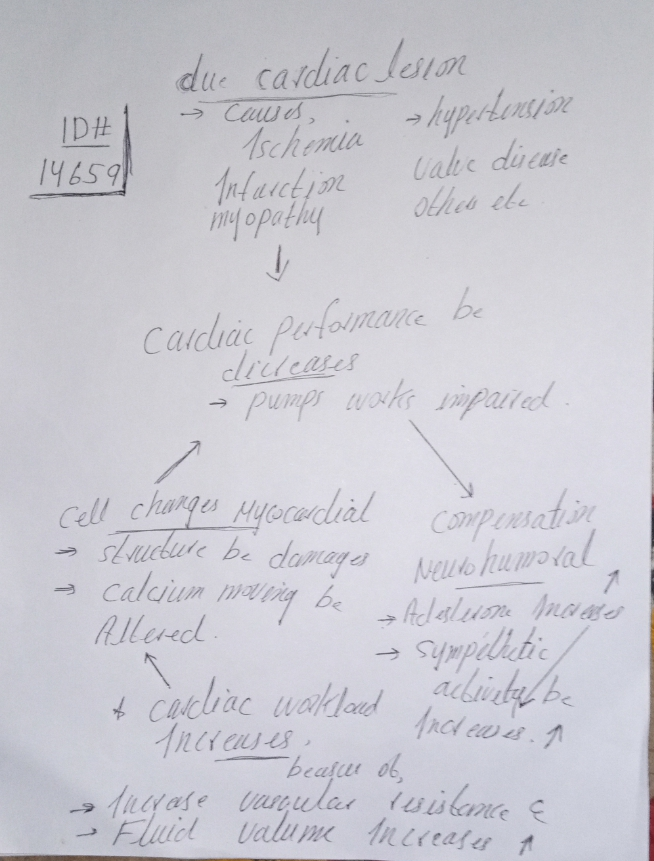 due cardiac lesion
ID#
14659
→ Causes,
Ischemia
Infarction
myopathy
→ hypertension
Valve disease
others etc
↓
Cardiac performance be
dicreases
→ pumps works impaired.
Cell changes Myocardial
→ structure be damages
→ calcium moving be
Altered.
Compensation
Neurohumoral
→ Increases ↑
→ sympethetic
activety be
Increases. ↑
+ cardiac workload
Increases,
of,
→ Increase vascular resistance &
→ Fluid volume Increases ↑